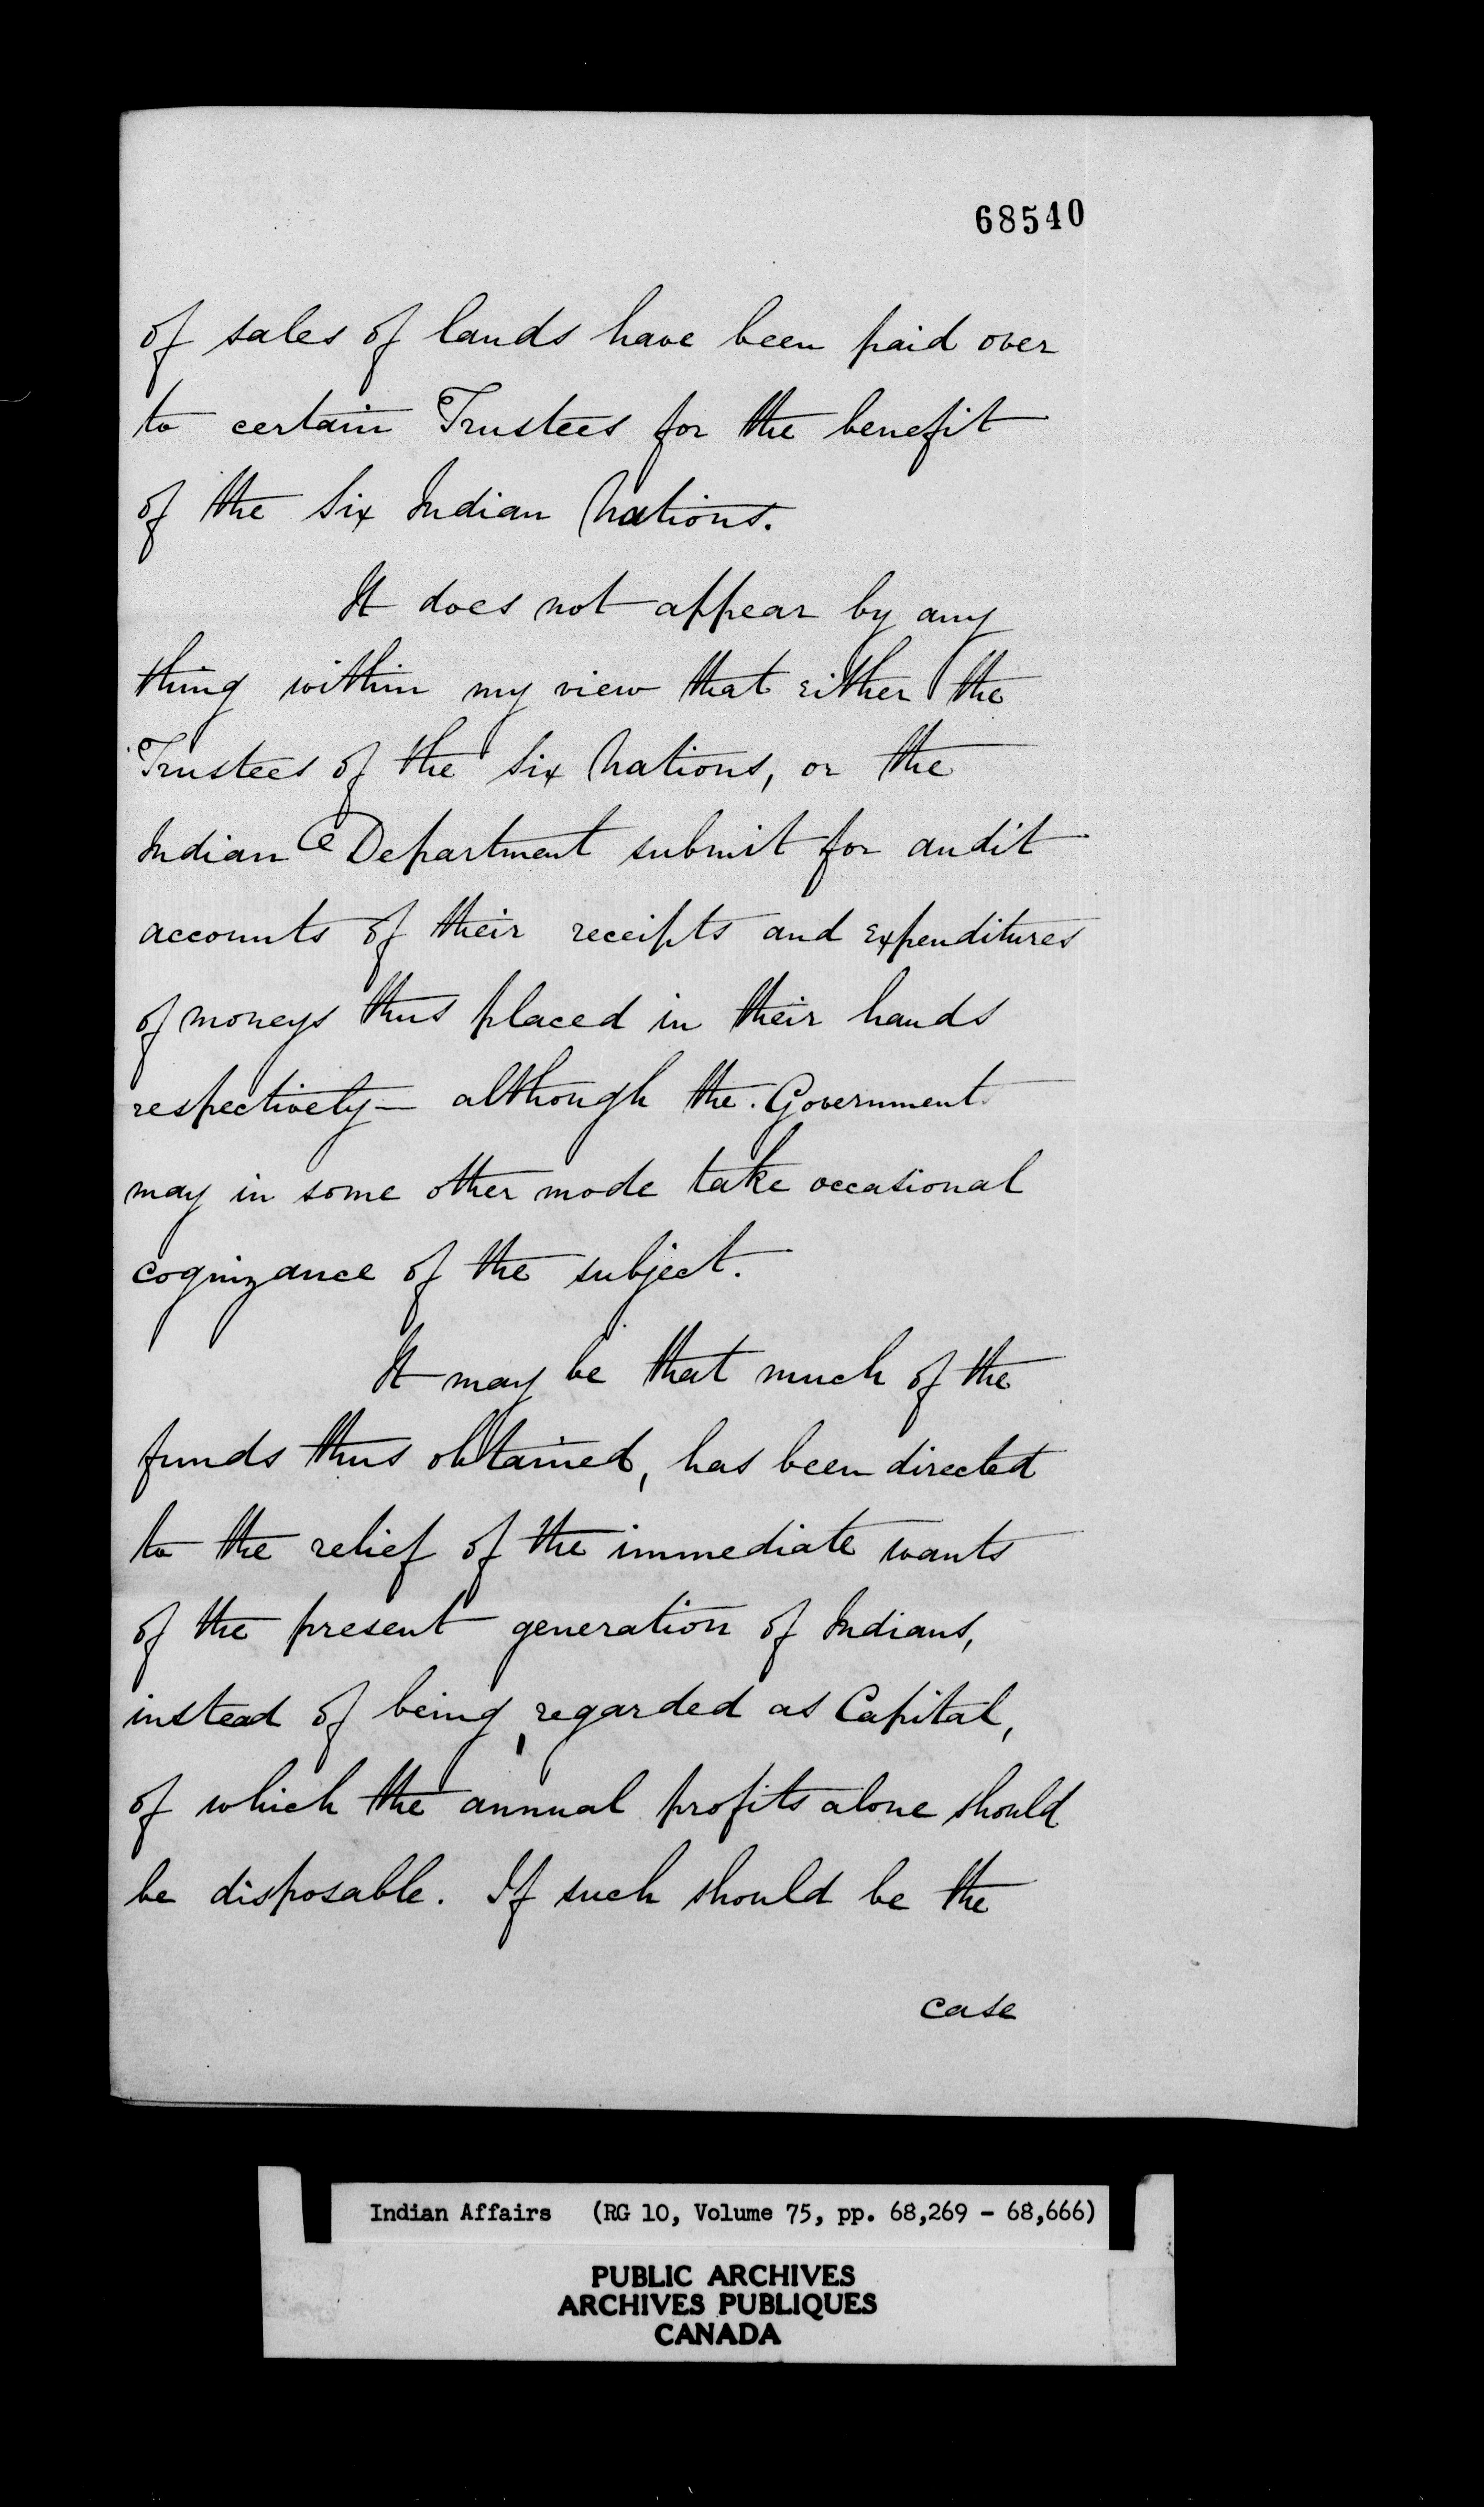 68540
of sales of lands have been paid over
to certain Trustees for the benefit
of the Six Indian Nations.
It does not appear by any
thing within my view that either the
Trustees of the Six Nations, or the
Indian Department submit for audit
accounts of their receipts and expenditures
of moneys thus placed in their hands
respectively— although the Government
may in some other mode take occasional
cognizance of the subject.
It may be that much of the
funds thus obtained, has been directed
to the relief of the immediate wants
of the present generation of Indians,
instead of being regarded as Capital,
of which the annual profits alone should
be disposable. If such should be the
case
Indian Affairs (RG 10, Volume 75, pp. 68,269 - 68,666)
PUBLIC ARCHIVES
ARCHIVES PUBLIQUES
CANADA